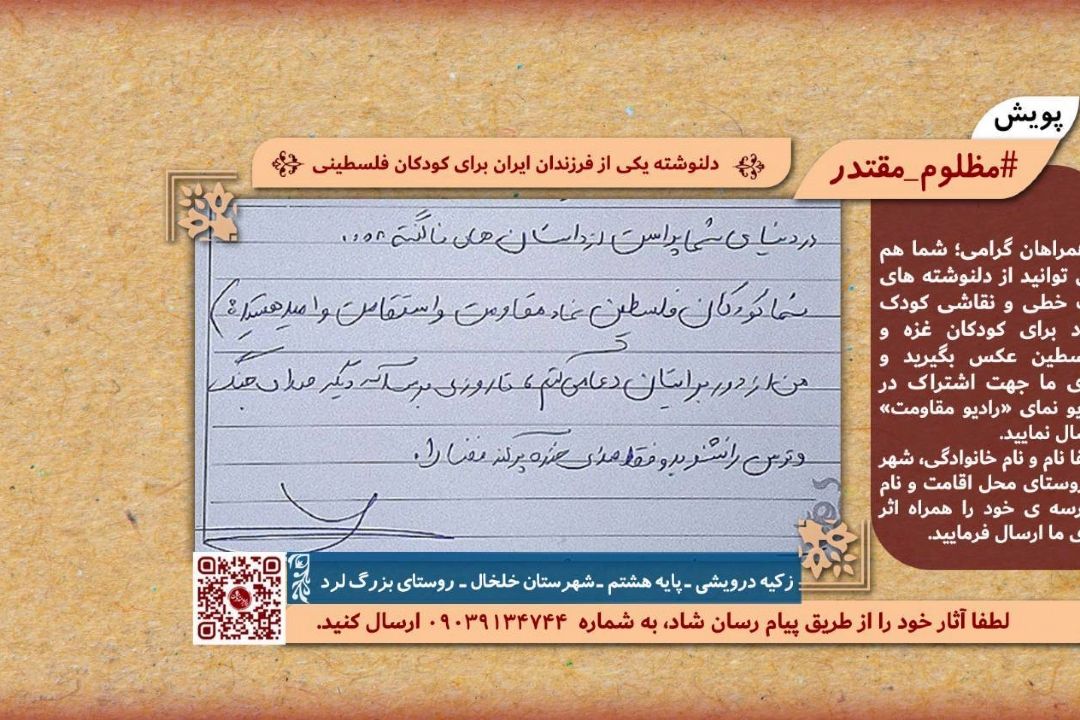 پویش
#مظلوم_مقتدر
دلنوشته یکی از فرزندان ایران برای کودکان فلسطینی
در دنیای شما پر است از داستان های ناگفته ....
شما کودکان فلسطین نماد مقاومت و استقامت و امید هستید :)
من از دور برایتان دعا می کنم ، تا روزی برسد که دیگر صدای جنگ
و ترس را نشنوید و فقط صدای خنده پر کند فضا را .
همراهان گرامی؛ شما هم
توانید از دلنوشته های
خطی و نقاشی کودک
برای کودکان غزه و
عکس بگیرید و
ما جهت اشتراک در
نمای «رادیو مقاومت»
نمایید.
نام و نام خانوادگی، شهر
روستای محل اقامت و نام
ی خود را همراه اثر
ما ارسال فرمایید.
زکیه درویشی ـ پایه هشتم ـ شهرستان خلخال ـ روستای بزرگ لرد
لطفا آثار خود را از طریق پیام رسان شاد، به شماره ۰۹۰۳۹۱۳۴۷۴۴ ارسال کنید.